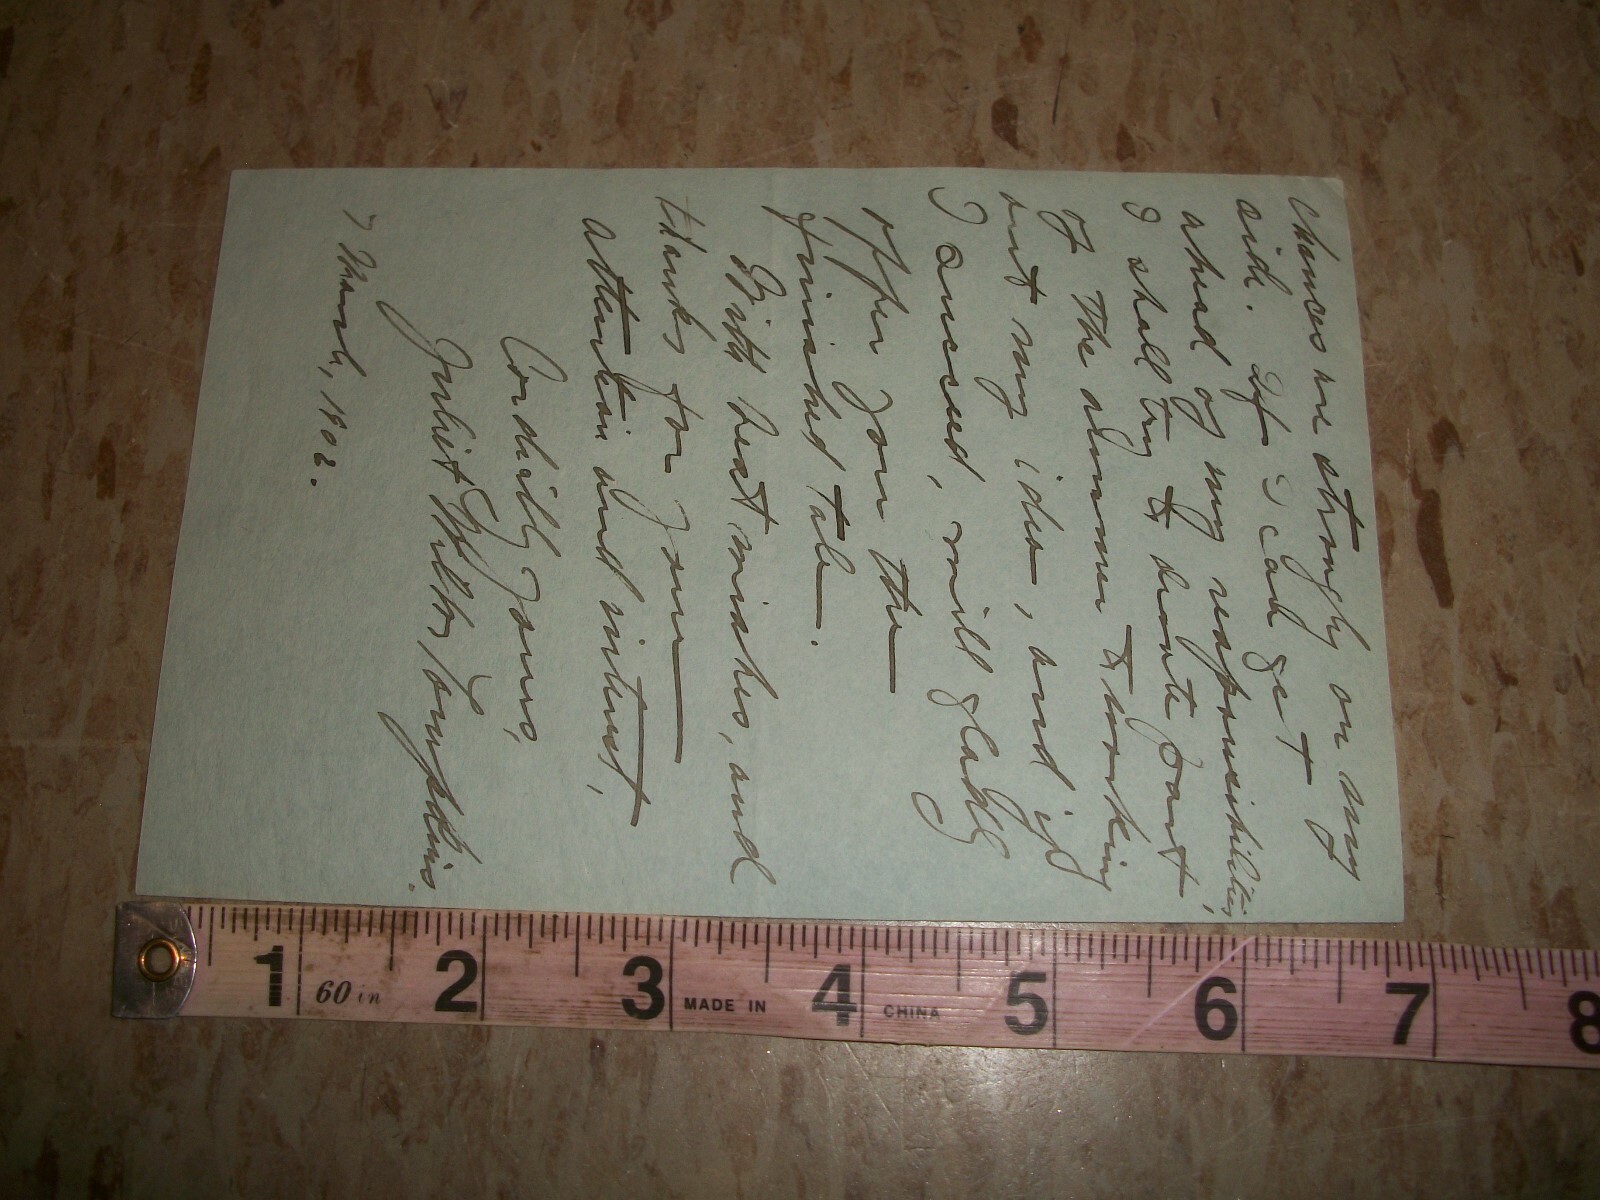 chances are strongly on my
side. If I can get
ahead of my responsibilities,
I shall try to devote part
of the summer to working
out my idea, and if
I succeed, will gladly
offer you the
finished tale.
With best wishes, and
thanks for your
attention and interest,
Cordially yours,
Juliet Wilbor Tompkins.
7 March, 1902.
1 60 in 2 3 MADE IN 4 CHINA 5 6 7 8